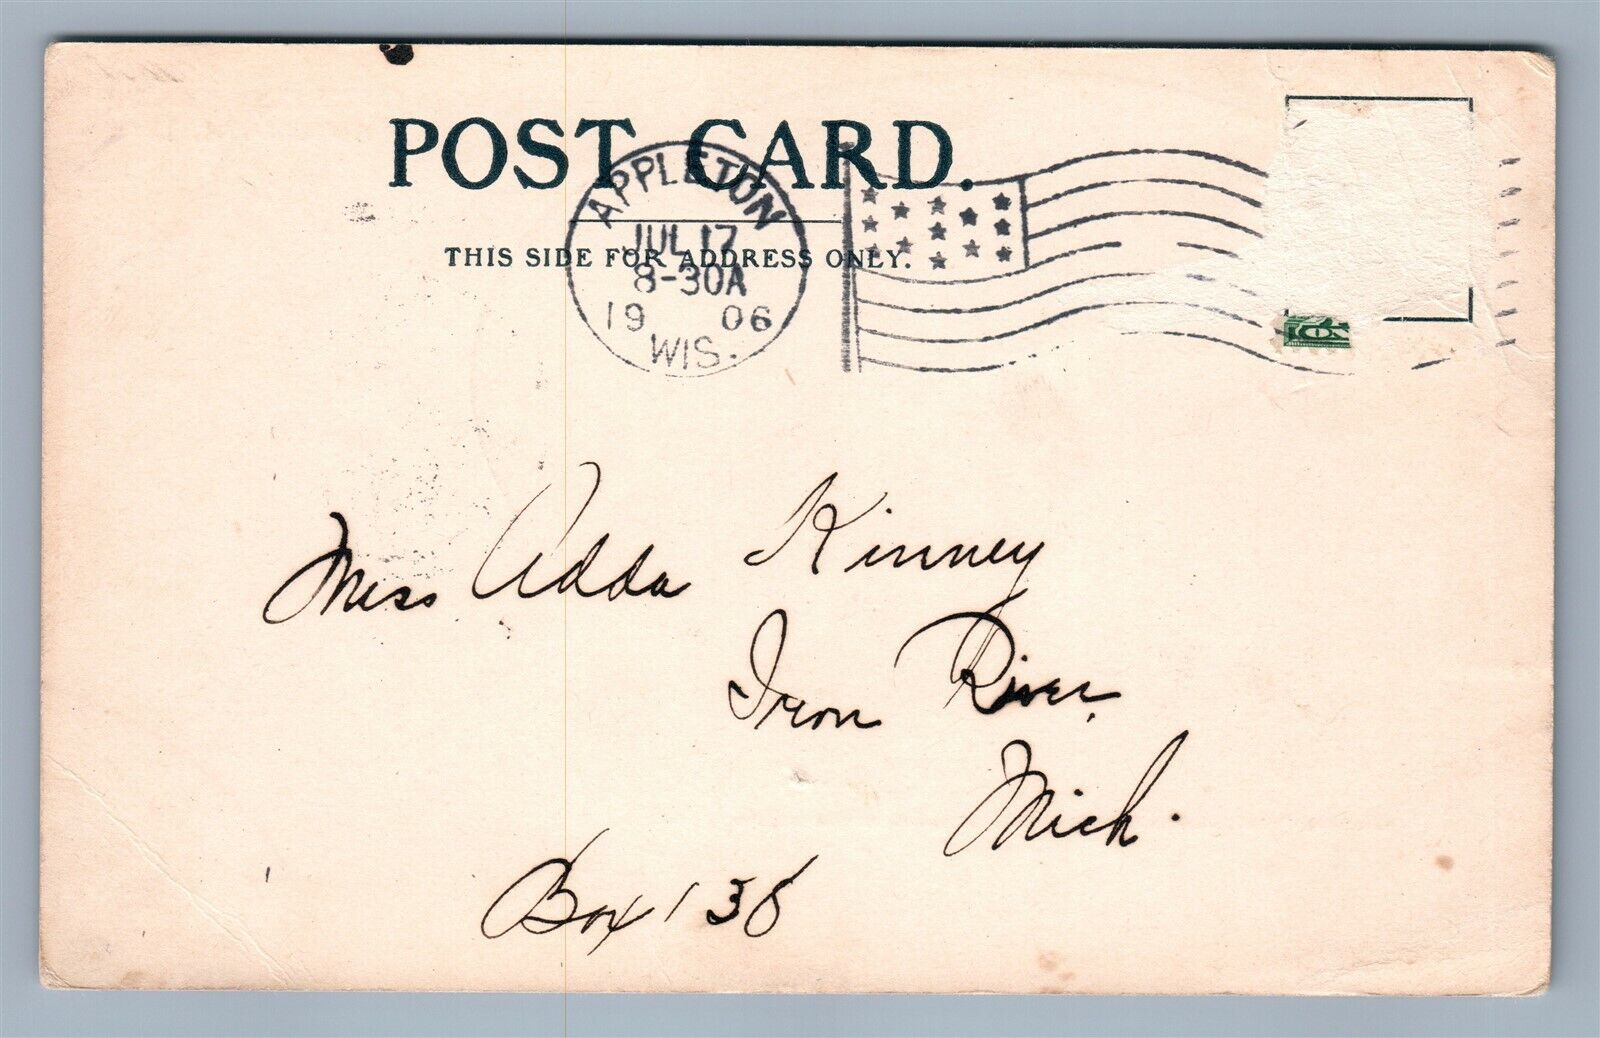 POST CARD.
THIS SIDE FOR ADDRESS ONLY.
APPLETON
JUL 17
8-30A
19 06
WIS.
Miss Adda Kinney
Iron River,
Mich.
Box 138